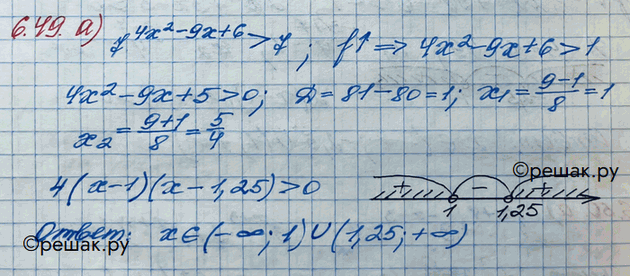 6.49. а) 7^(4x²-9x+6) > 7 ; f↑ => 4x²-9x+6>1
4x²-9x+5>0; D=81-80=1; x₁=(9-1)/8=1
x₂=(9+1)/8=5/4
©решак.ру
4(x-1)(x-1,25)>0
+ - +
1 1,25
Ответ: x∈(-∞; 1)∪(1,25; +∞)
©решак.ру